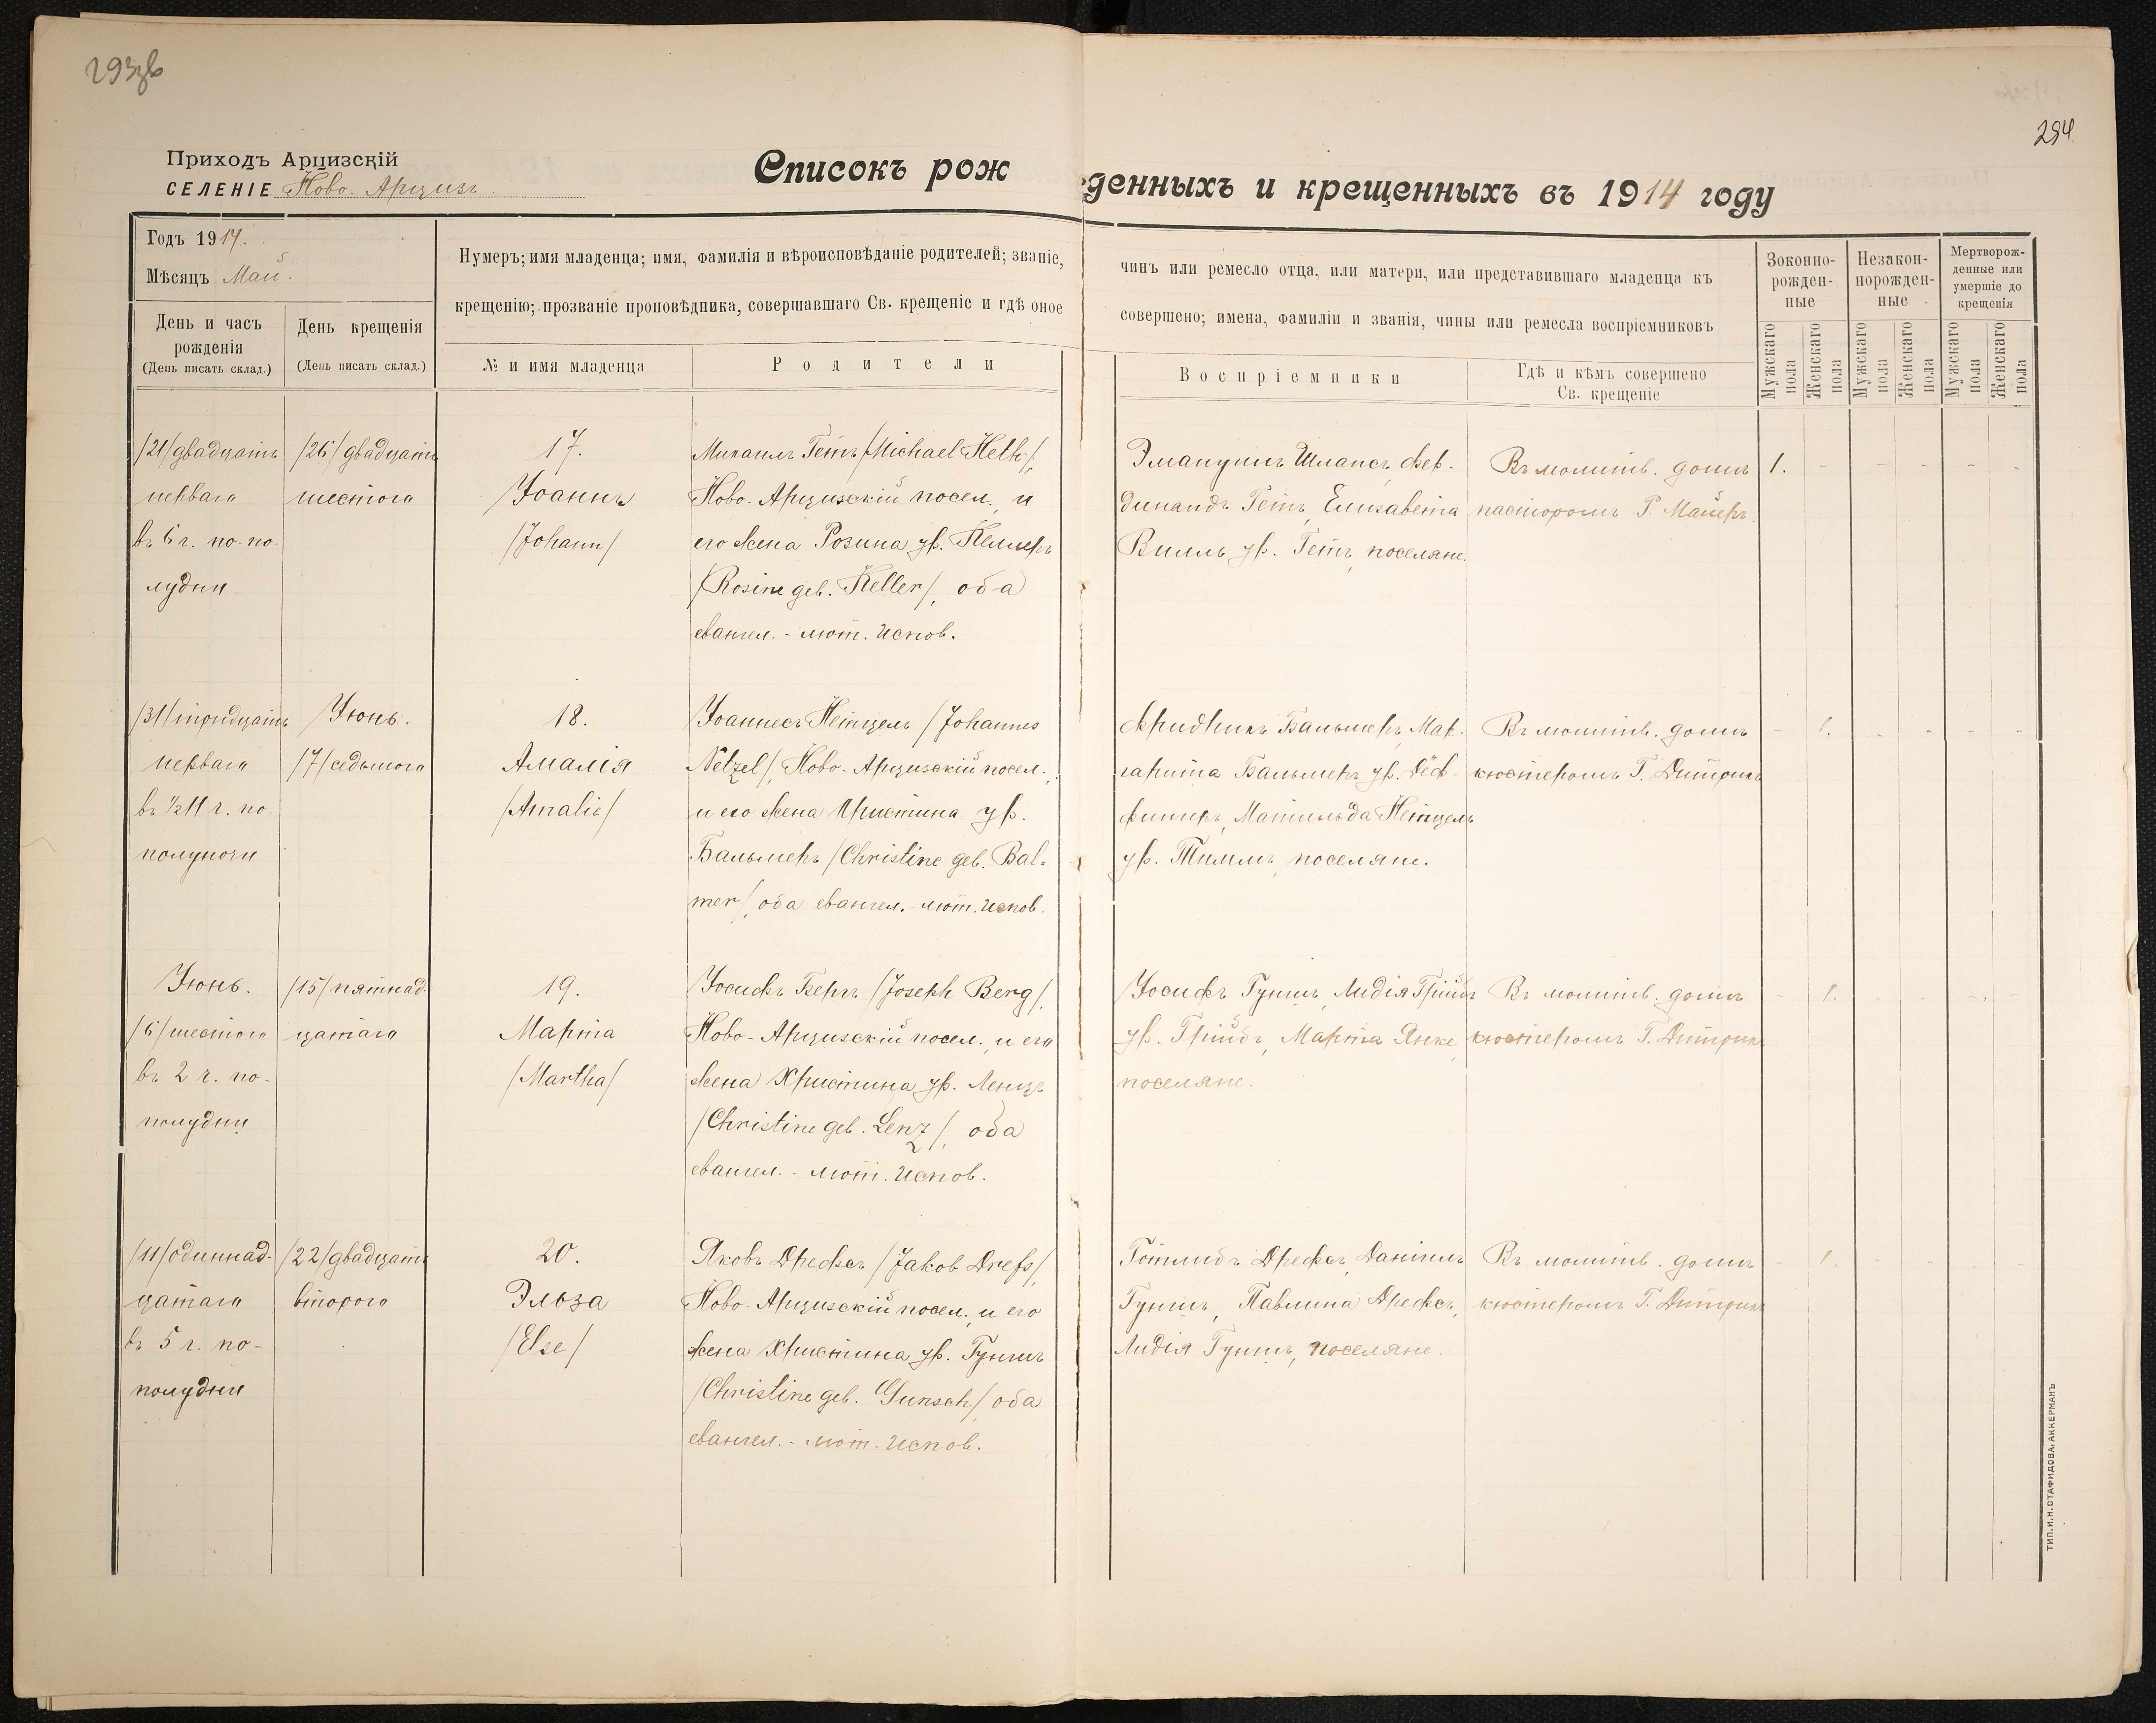 293зв
294.
Приходъ Арцизскій
СЕЛЕНІЕ Ново-Арцизъ
Списокъ рож
денныхъ и крещенныхъ въ 1914 году
Годъ 1914.
Мѣсяцъ Май.
День и часъ
рожденія
(День писать склад.)
День крещенія
(День писать склад.)
Нумеръ; имя младенца; имя, фамилія и вѣроисповѣданіе родителей; званіе,
крещенію; прозваніе проповѣдника, совершавшаго Св. крещеніе и гдѣ оное
№ и имя младенца
Родители
чинъ или ремесло отца, или матери, или представившаго младенца къ
совершено; имена, фамиліи и званія, чины или ремесла воспріемниковъ
Воспріемники
Гдѣ и кѣмъ совершено
Св. крещеніе
Зоконно-
рожден-
ные
Незакон-
норожден-
ные
Мертворож-
денные или
умершіе до
крещенія
Мужскаго пола
Женскаго пола
Мужскаго пола
Женскаго пола
Мужскаго пола
Женскаго пола
/21/ двадцать
перваго
въ 6 ч. по-по-
лудни
/26/ двадцать
шестого
17.
Іоаннъ
/Johann/
Михаилъ Гетъ /Michael Heth/,
Ново-Арцизскій посел. и
его жена Розина ур. Келлеръ
/Rosine geb. Keller/, оба
евангел.-лют. испов.
Эмануилъ Шлапсъ, Фер-
динандъ Гетъ, Елизавета
Вилль ур. Гетъ, поселяне.
Въ молитв. домѣ
пасторомъ Г. Майеръ.
1. - - - - -
/31/ тридцать
перваго
въ ½11 ч. по-
полуночи
Іюнь.
/7/ седьмого
18.
Амалія
/Amalie/
Іоаннесъ Нетцель /Johannes
Netzel/, Ново-Арцизскій посел.,
и его жена Христина ур.
Бальмеръ /Christine geb. Bal-
mer/, оба евангел.-лют. испов.
Фридрихъ Бальмеръ, Мар-
гарита Бальмеръ ур. Дёф-
фингеръ, Матильда Нетцель
ур. Тиммъ, поселяне.
Въ молитв. домѣ
кюстеромъ Г. Дитрихъ
- 1. - - - -
Іюнь.
/6/ шестого
въ 2 ч. по-
полудни
/15/ пятнад-
цатаго
19.
Марта
/Martha/
Іосифъ Бергъ /Joseph Berg/,
Ново-Арцизскій посел., и его
жена Христина ур. Ленцъ
/Christine geb. Lenz/, оба
евангел.-лют. испов.
Іосифъ Гуншъ, Лидія Грійбъ
ур. Грійбъ, Марта Янке,
поселяне.
Въ молитв. домѣ
кюстеромъ Г. Дитрихъ
- 1. - - - -
/11/ одиннад-
цатаго
въ 5 ч. по-
полудни
/22/ двадцать
второго
20.
Эльза
/Else/
Яковъ Дрефсъ /Jakob Drefs/,
Ново-Арцизскій посел., и его
жена Христина ур. Гуншъ
/Christine geb. Gunsch/ оба
евангел.-лют. испов.
Готлибъ Дрефсъ, Даніилъ
Гуншъ, Павлина Дрефсъ,
Лидія Гуншъ, поселяне.
Въ молитв. домѣ
кюстеромъ Г. Дитрихъ
- 1. - - - -
ТИП. И. Н. СТАФИДОВА, АККЕРМАНЪ